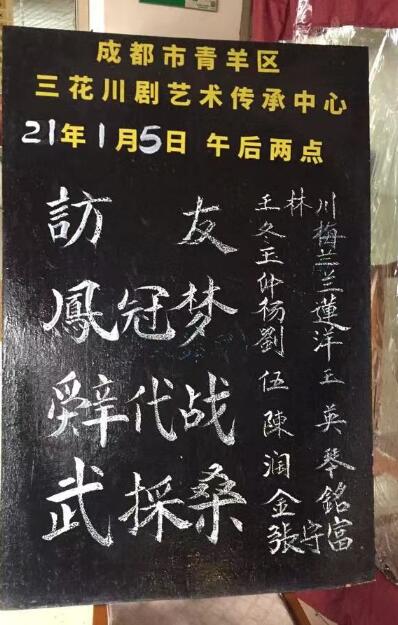 成都市青羊区
三花川剧艺术传承中心
21年1月5日 午后两点
訪友
鳳冠梦
辤代战
武採桑
王林川
冬梅
王兰
仲兰
杨蓮
劉洋
伍王
陳英
润琴
金銘
張守富